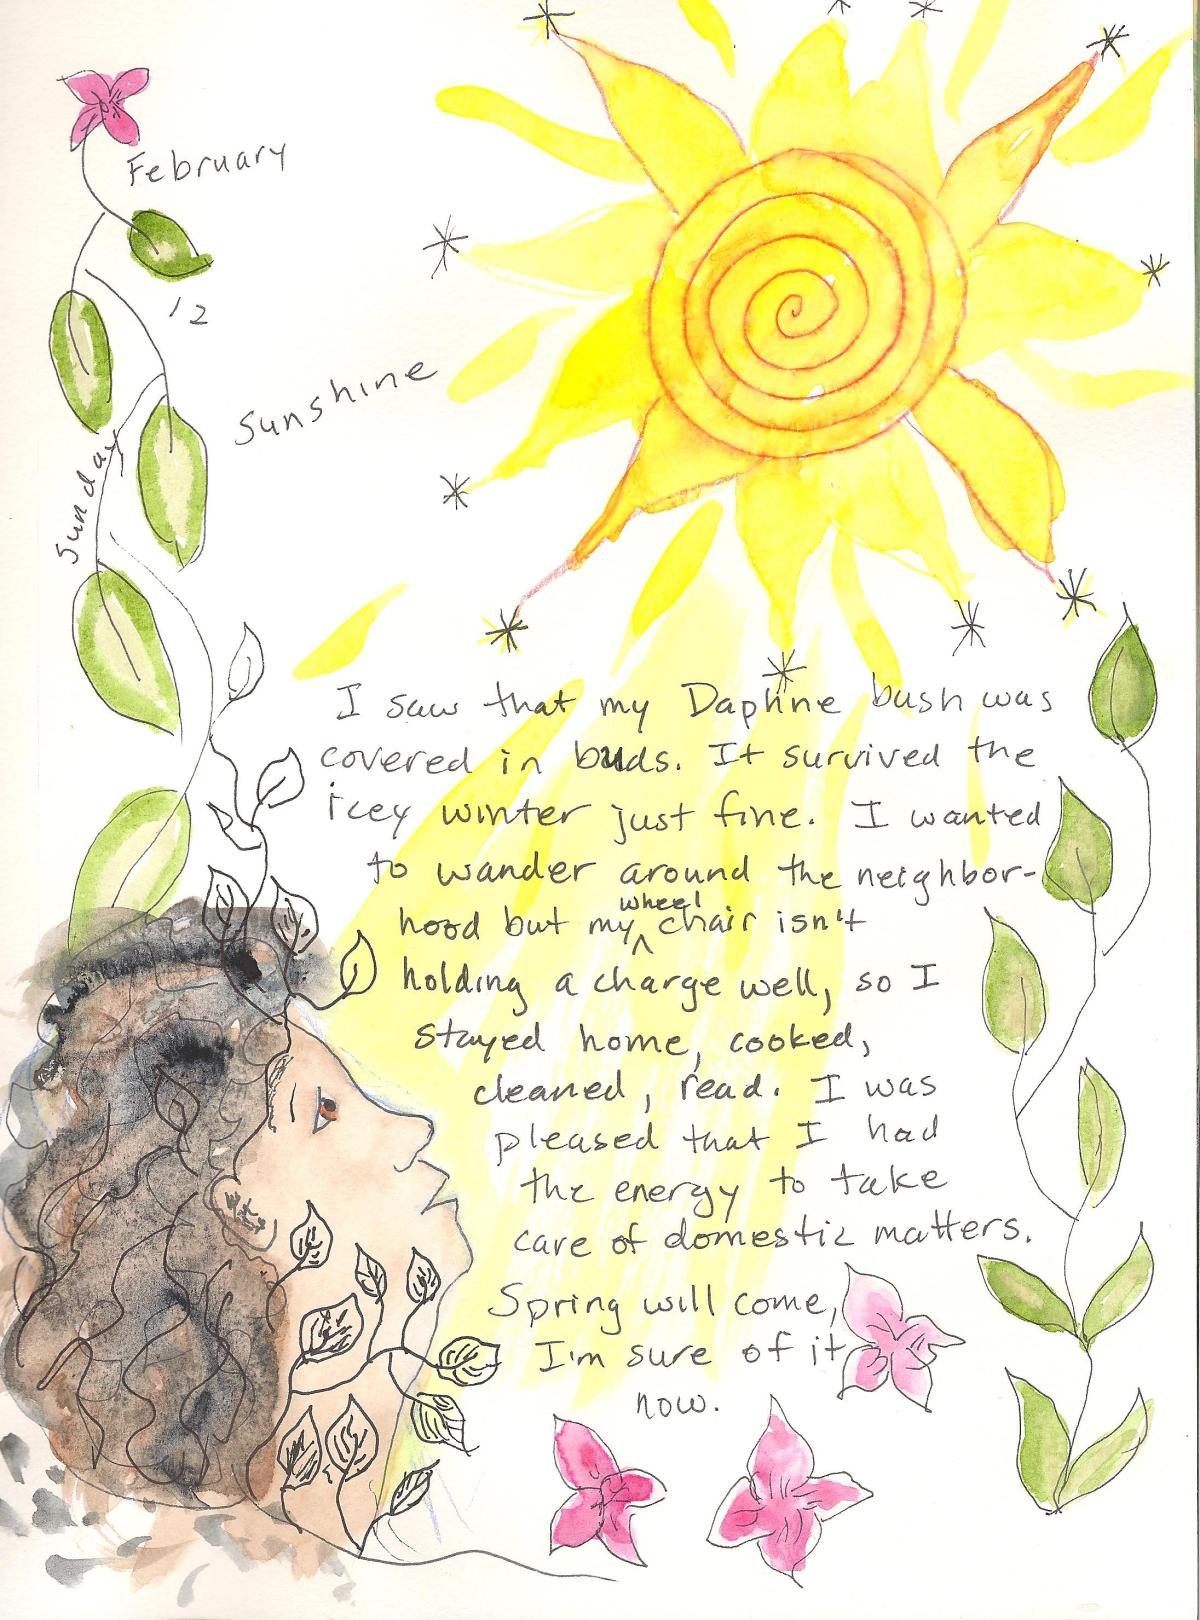 February
'12
Sunshine
Sunday
I saw that my Daphne bush was
covered in buds. It survived the
icey winter just fine. I wanted
to wander around the neighbor-
hood but my wheel chair isn't
holding a charge well, so I
stayed home, cooked,
cleaned, read. I was
pleased that I had
the energy to take
care of domestic matters.
Spring will come,
I'm sure of it
now.